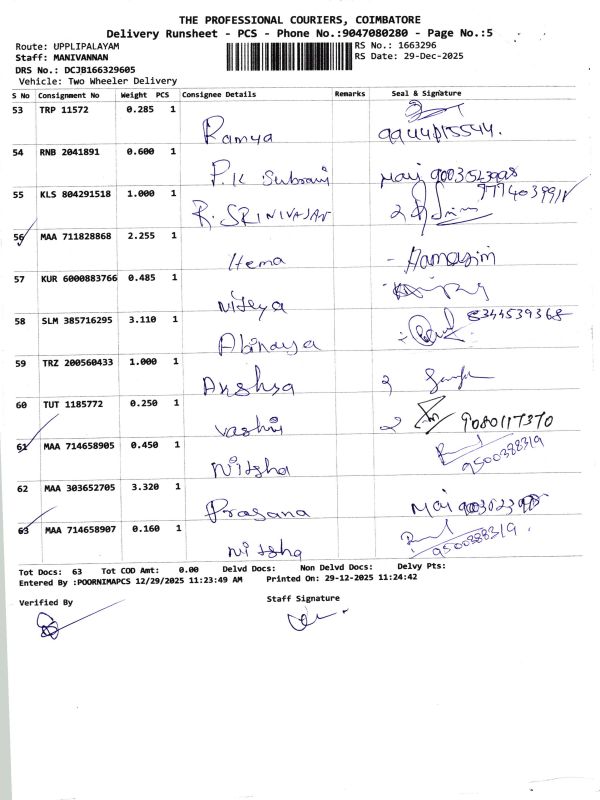 THE PROFESSIONAL COURIERS, COIMBATORE
Delivery Runsheet - PCS - Phone No.:9047080280 - Page No.:5
Route: UPPLIPALAYAM
RS No.: 1663296
Staff: MANIVANNAN
RS Date: 29-Dec-2025
DRS No.: DCJB166329605
Vehicle: Two Wheeler Delivery
S No Consignment No Weight PCS Consignee Details Remarks Seal & Signature
53 TRP 11572 0.285 1 Ramya
54 RNB 2041891 0.600 1 P.K
55 KLS 804291518 1.000 1 R. SRINIVASAN
56 MAA 711828868 2.255 1 Hema
57 KUR 6000883766 0.485 1 Niteya
58 SLM 385716295 3.110 1 Abinaya 8344539368
59 TRZ 200560433 1.000 1
60 TUT 1185772 0.250 1 9080117370
61 MAA 714658905 0.450 1 Nitsha 9500388319
62 MAA 303652705 3.320 1 Prasana
63 MAA 714658907 0.160 1 Nitsha
Tot Docs: 63 Tot COD Amt: 0.00 Delvd Docs: Non Delvd Docs: Delvy Pts:
Entered By :POORNIMAPCS 12/29/2025 11:23:49 AM Printed On: 29-12-2025 11:24:42
Verified By
Staff Signature